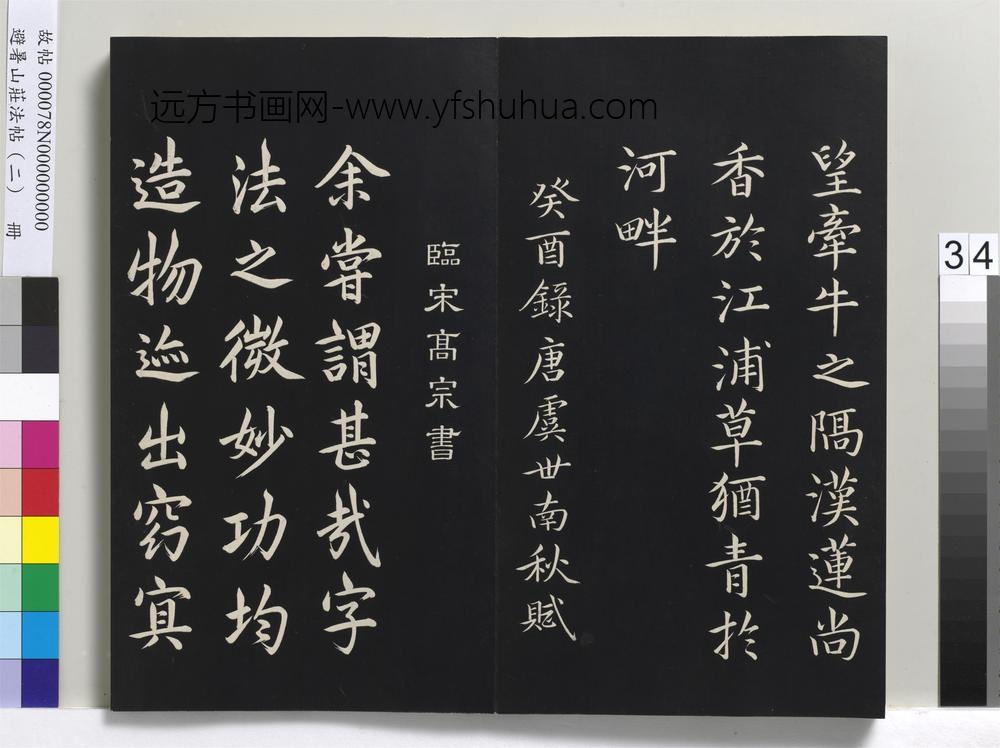 望牽牛之隔漢蓮尚
香於江浦草猶青於
河畔
癸酉錄唐虞世南秋賦
臨宋髙宗書
余嘗謂甚哉字
法之微妙功均
造物迹出窈冥
远方书画网-www.yfshuhua.com
故帖 000078N000000000
避暑山莊法帖(二) 冊
34